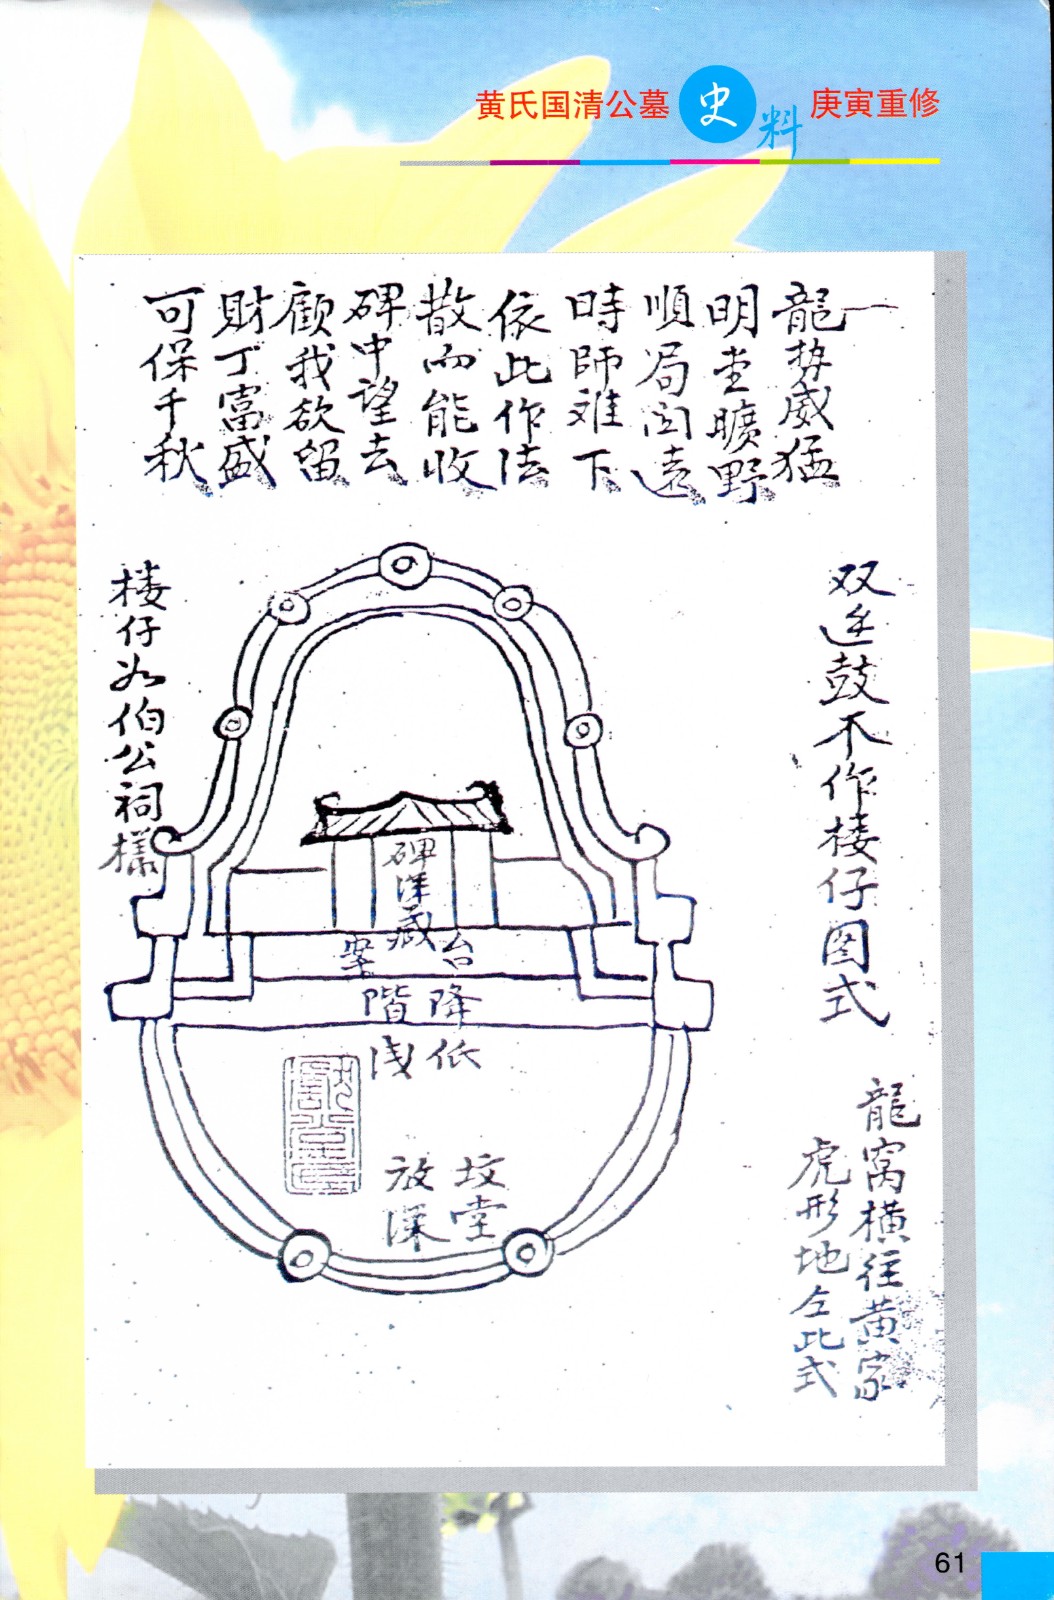 黄氏国清公墓 史料 庚寅重修
一
龍势威猛
明堂曠野
順局闊遠
時師难下
依此作法
散而能收
碑中望去
顧我欲留
財丁富盛
可保千秋
双连鼓不作楼仔图式
龍窝横往黄家
虎形地仝此式
楼仔如伯公祠様
碑深藏
台案
降階
低浅
坟堂
放深
61